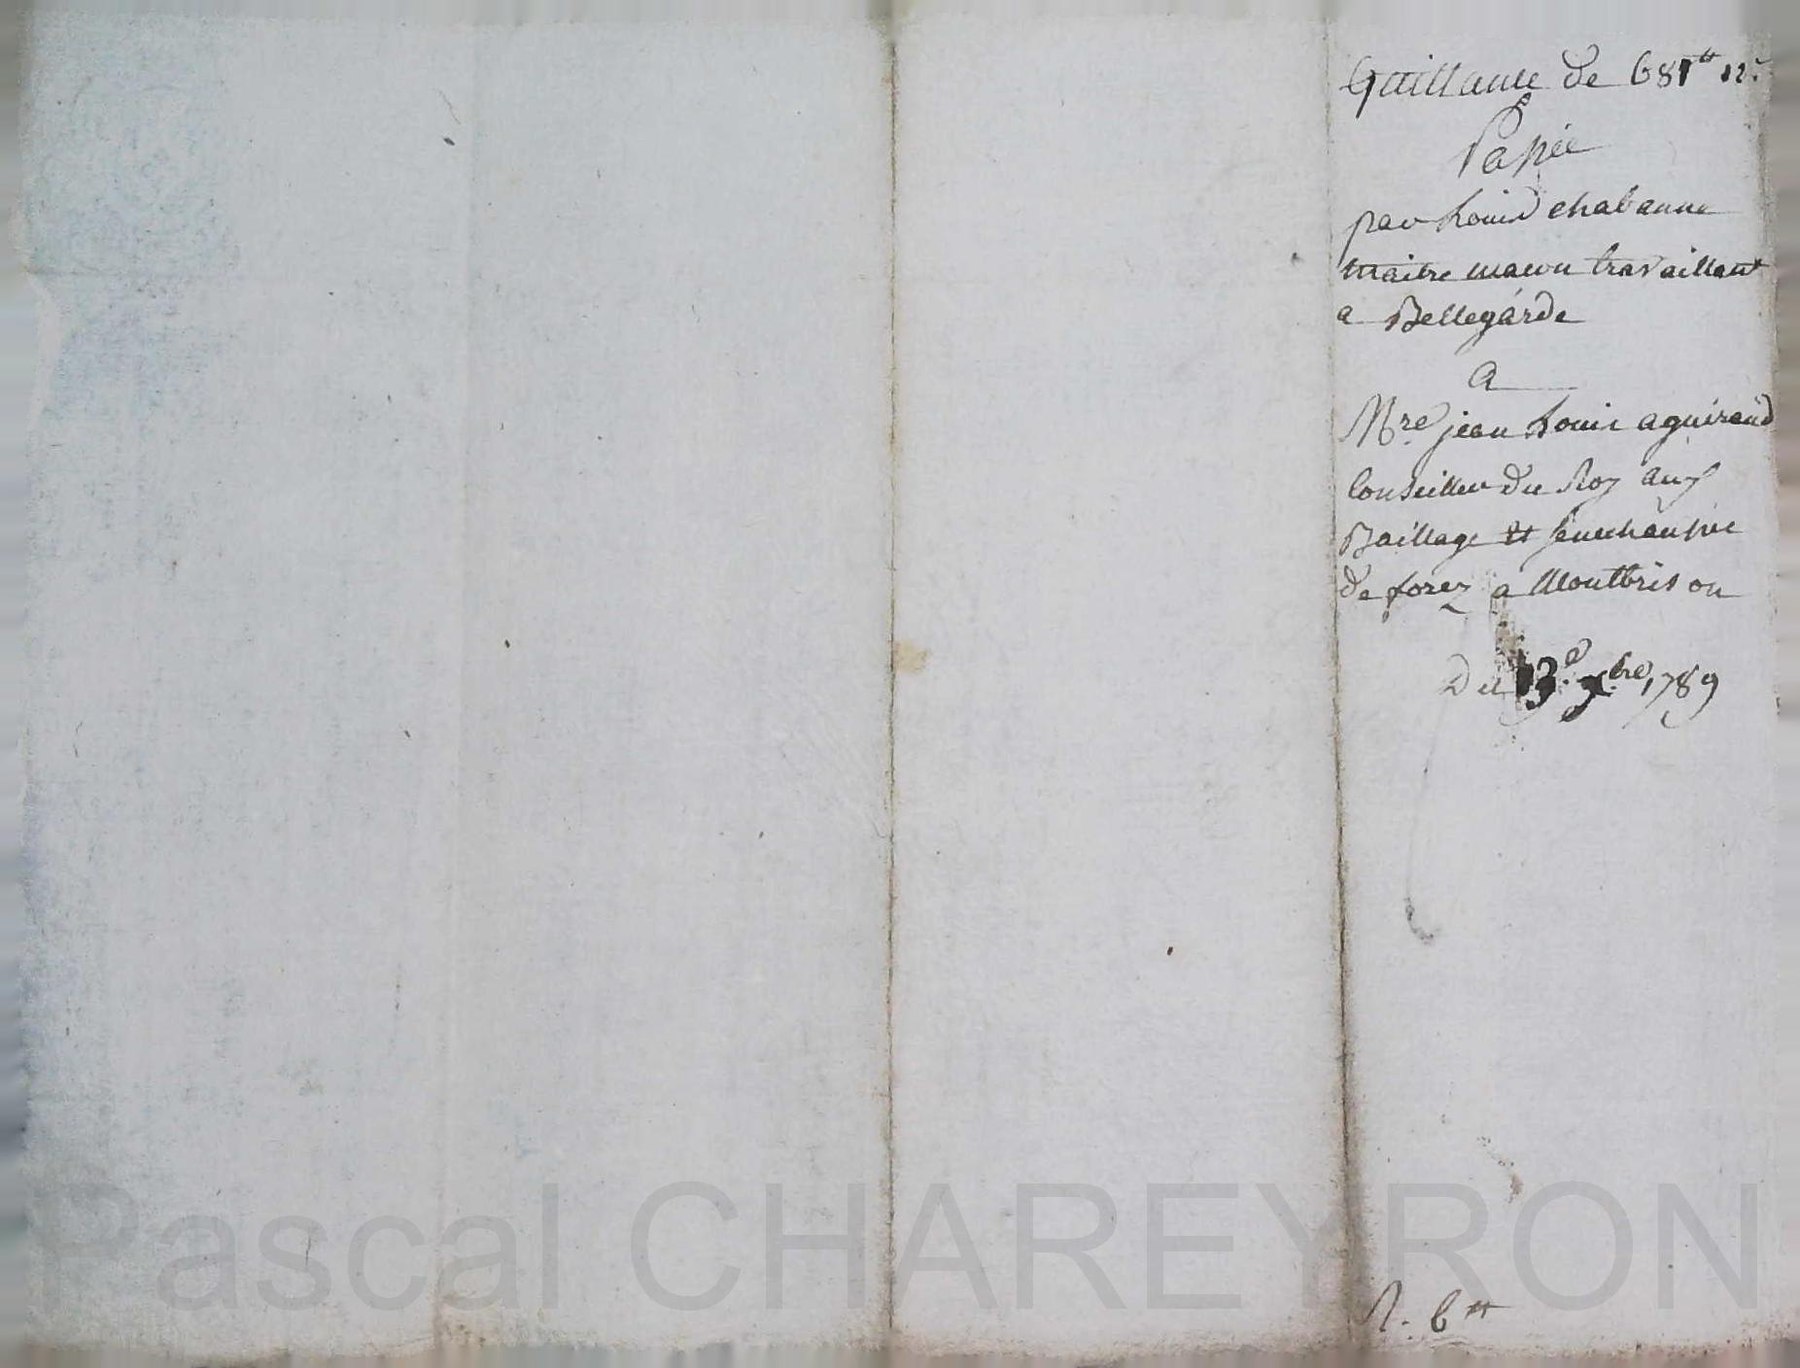 Quittance de 681tt 12s
Passée
par Louis chabanne
maitre macon travaillant
a Bellegarde
a
Mre jean Louis aguiraud
Conseiller du Roy aux
Baillage et senechaussée
de forez a Montbrison
Du 13e xbre 1789
R. 6tt
Pascal CHAREYRON